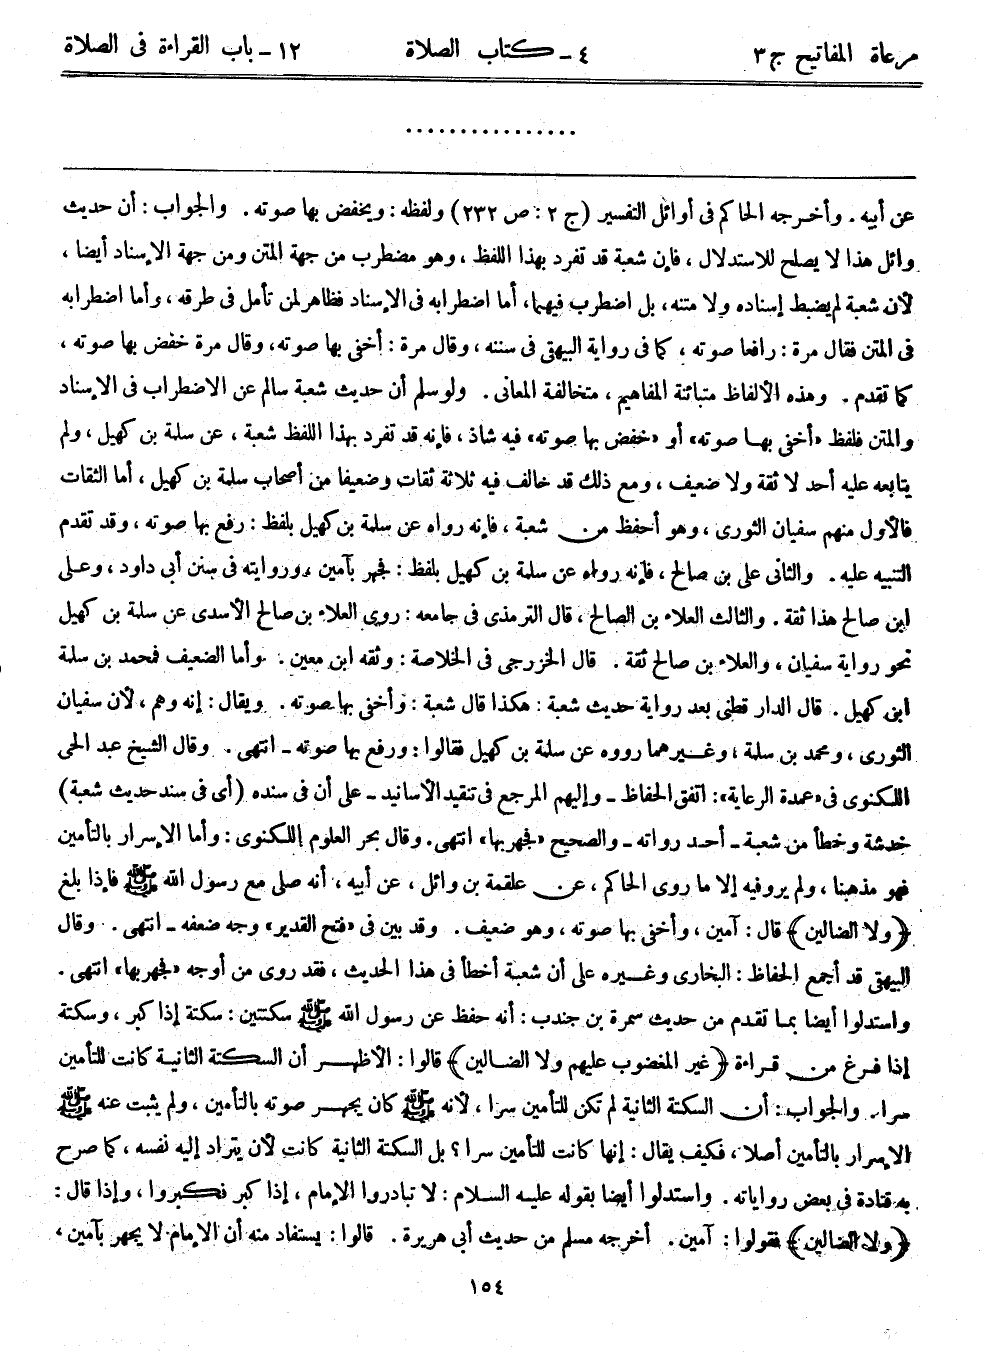 مرعاة المفاتيح ج ٣ ٤ – كتاب الصلاة ١٢ – باب القراءة فى الصلاة
................
عن أبيه . وأخرجه الحاكم فى أوائل التفسير (ج ٢ : ص ٢٣٢) ولفظه : ويخفض بها صوته . والجواب : أن حديث
وائل هذا لا يصلح للاستدلال ، فإن شعبة قد تفرد بهذا اللفظ ، وهو مضطرب من جهة المتن ومن جهة الإسناد أيضا ،
لأن شعبة لم يضبط إسناده ولا متنه، بل اضطرب فيهما، أما اضطرابه فى الإسناد فظاهر لمن تأمل فى طرقه ، وأما اضطرابه
فى المتن فقال مرة : رافعا صوته ، كما فى رواية البيهقى فى سننه ، وقال مرة : أخفى بها صوته، وقال مرة خفض بها صوته ،
كما تقدم . وهذه الألفاظ متبائنة المفاهيم ، متخالفة المعانى . ولو سلم أن حديث شعبة سالم عن الاضطراب فى الإسناد
والمتن فلفظ «أخفى بها صوته» أو «خفض بها صوته» فيه شاذ ، فإنه قد تفرد بهذا اللفظ شعبة ، عن سلمة بن كهيل ، ولم
يتابعه عليه أحد لا ثقة ولا ضعيف ، ومع ذلك قد خالف فيه ثلاثة ثقات وضعيفا من أصحاب سلمة بن كهيل ، أما الثقات
فالأول منهم سفيان الثورى ، وهو أحفظ من شعبة ، فإنه رواه عن سلمة بن كهيل بلفظ : رفع بها صوته ، وقد تقدم
التنبيه عليه . والثانى على بن صالح ، فإنه رواه عن سلمة بن كهيل بلفظ : فجهر بآمين ، وروايته فى سنن أبى داود ، وعلى
ابن صالح هذا ثقة . والثالث العلاء بن الصالح ، قال الترمذى فى جامعه : روى العلاء بن صالح الأسدى عن سلمة بن كهيل
نحو رواية سفيان ، والعلاء بن صالح ثقة . قال الخزرجى فى الخلاصة : وثقه ابن معين . وأما الضعيف فمحمد بن سلمة
ابن كهيل . قال الدار قطنى بعد رواية حديث شعبة : هكذا قال شعبة : وأخفى بها صوته . ويقال : إنه وهم ، لأن سفيان
الثورى ، ومحمد بن سلمة ، وغيرهما رووه عن سلمة بن كهيل فقالوا : ورفع بها صوته – انتهى . وقال الشيخ عبد الحى
اللكنوى فى «عمدة الرعاية»: اتفق الحفاظ – وإليهم المرجع فى تنقيد الأسانيد – على أن فى سنده (أى فى سند حديث شعبة)
خدشة وخطأ من شعبة – أحد رواته – والصحيح «فجهر بها» انتهى. وقال بحر العلوم اللكنوى : وأما الإسرار بالتأمين
فهو مذهبنا ، ولم يرو فيه إلا ما روى الحاكم ، عن علقمة بن وائل ، عن أبيه ، أنه صلى مع رسول الله ﷺ فإذا بلغ
﴿ولا الضالين﴾ قال : آمين ، وأخفى بها صوته ، وهو ضعيف . وقد بين فى «فتح القدير» وجه ضعفه – انتهى . وقال
البيهقى قد أجمع الحفاظ : البخارى وغيره على أن شعبة أخطأ فى هذا الحديث ، فقد روى من أوجه «فجهر بها» انتهى .
واستدلوا أيضا بما تقدم من حديث سمرة بن جندب : أنه حفظ عن رسول الله ﷺ سكتتين : سكتة إذا كبر ، وسكتة
إذا فرغ من قراءة ﴿غير المغضوب عليهم ولا الضالين﴾ قالوا : الأظهر أن السكتة الثانية كانت للتأمين
سرا. والجواب : أن السكتة الثانية لم تكن للتأمين سرا ، لأنه ﷺ كان يجهر صوته بالتأمين ، ولم يثبت عنه ﷺ
الإسرار بالتأمين أصلا ، فكيف يقال : إنها كانت للتأمين سرا ؟ بل السكتة الثانية كانت لأن يتراد إليه نفسه ، كما صرح
به قتادة فى بعض رواياته . واستدلوا أيضا بقوله عليه السلام : لا تبادروا الإمام ، إذا كبر فكبروا ، وإذا قال :
﴿ولا الضالين﴾ فقولوا : آمين . أخرجه مسلم من حديث أبى هريرة . قالوا : يستفاد منه أن الإمام لا يجهر بآمين ،
١٥٤